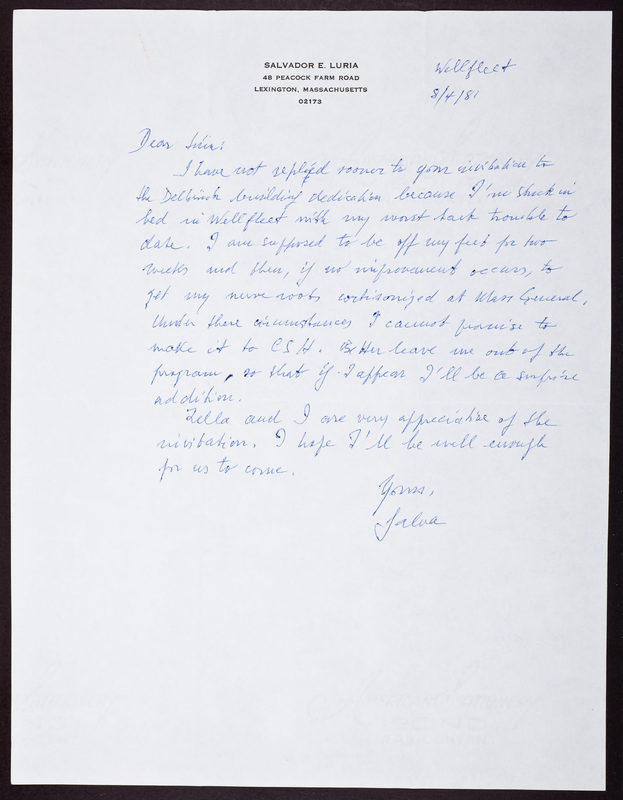 SALVADOR E. LURIA
48 PEACOCK FARM ROAD
LEXINGTON, MASSACHUSETTS
02173
Wellfleet
8/4/81
Dear
I have not replied sooner to your invitation to
the Delbrück building dedication because I'm stuck in
bed in Wellfleet with my worst back trouble to
date. I am supposed to be off my feet for two
weeks and then, if no improvement occurs, to
get my nerve roots cortisonized at Mass General.
Under these circumstances I cannot promise to
make it to CSH. Better leave me out of the
program, so that if I appear I'll be a surprise
addition.
Zella and I are very appreciative of the
invitation. I hope I'll be well enough
for us to come.
Yours,
Salva